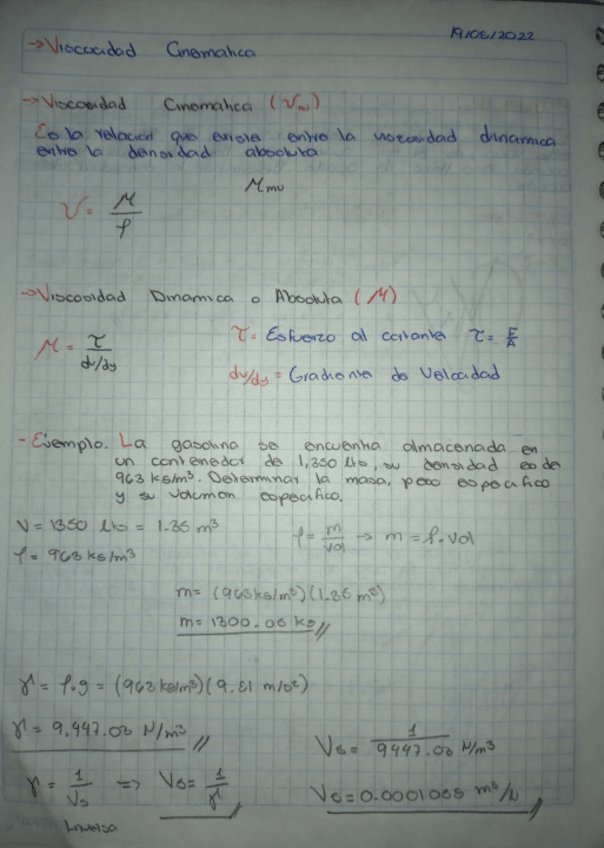 19/06/2022
→Viscocidad Cinematica
→Viscosidad Cinematica (
Es la relacion que existe entre la viscosidad dinamica
entre la densidad absoluta
ν = μ/ρ
→Viscosidad Dinamica o Absoluta (μ)
μ = τ/(dv/dy)
τ = Esfuerzo al cortante τ = F/A
dv/dy = Gradiente de Velocidad
- Ejemplo. La gasolina se encuentra almacenada en
un contenedor de 1,350 lts, su densidad es de
963 kg/m³. Determinar la masa, peso especifico
y su volumen especifico.
V = 1350 lts = 1.35 m³
ρ = m/vol → m = ρ.vol
ρ = 963 kg/m³
m = (963 kg/m³)(1.35 m³)
m = 1300.05 kg //
γ = ρ.g = (963 kg/m³)(9.81 m/s²)
γ = 9,447.03 N/m³ //
Vs = 1/9447.03 N/m³
γ = 1/Vs => Vs = 1/γ //
Vs = 0.0001055 m³/N //
Inversa